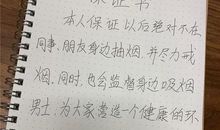 保证书
本人保证以后绝对不在
同事、朋友身边抽烟，并尽力戒
烟，同时，也会监督身边吸烟
男士，为大家营造一个健康的环